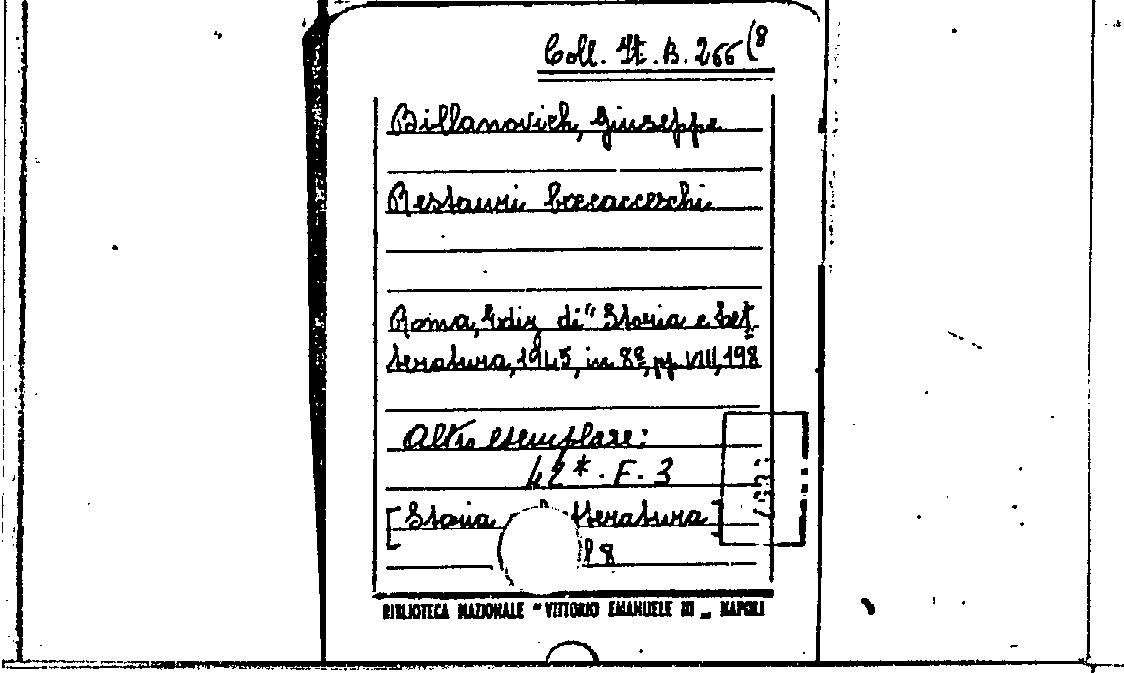 Coll. It. B. 266 (8
Billanovich, Giuseppe
Restauri boccacceschi
Roma, Ediz. di "Storia e Let-
teratura, 1945, in 8º, pp. VIII, 198
Altro esemplare:
42*. F. 3
[Storia e Letteratura]
8
BIBLIOTECA NAZIONALE "VITTORIO EMANUELE III" NAPOLI